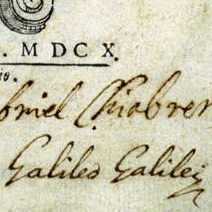 . M D C X.
briel Chiabrer
Galileo Galilei